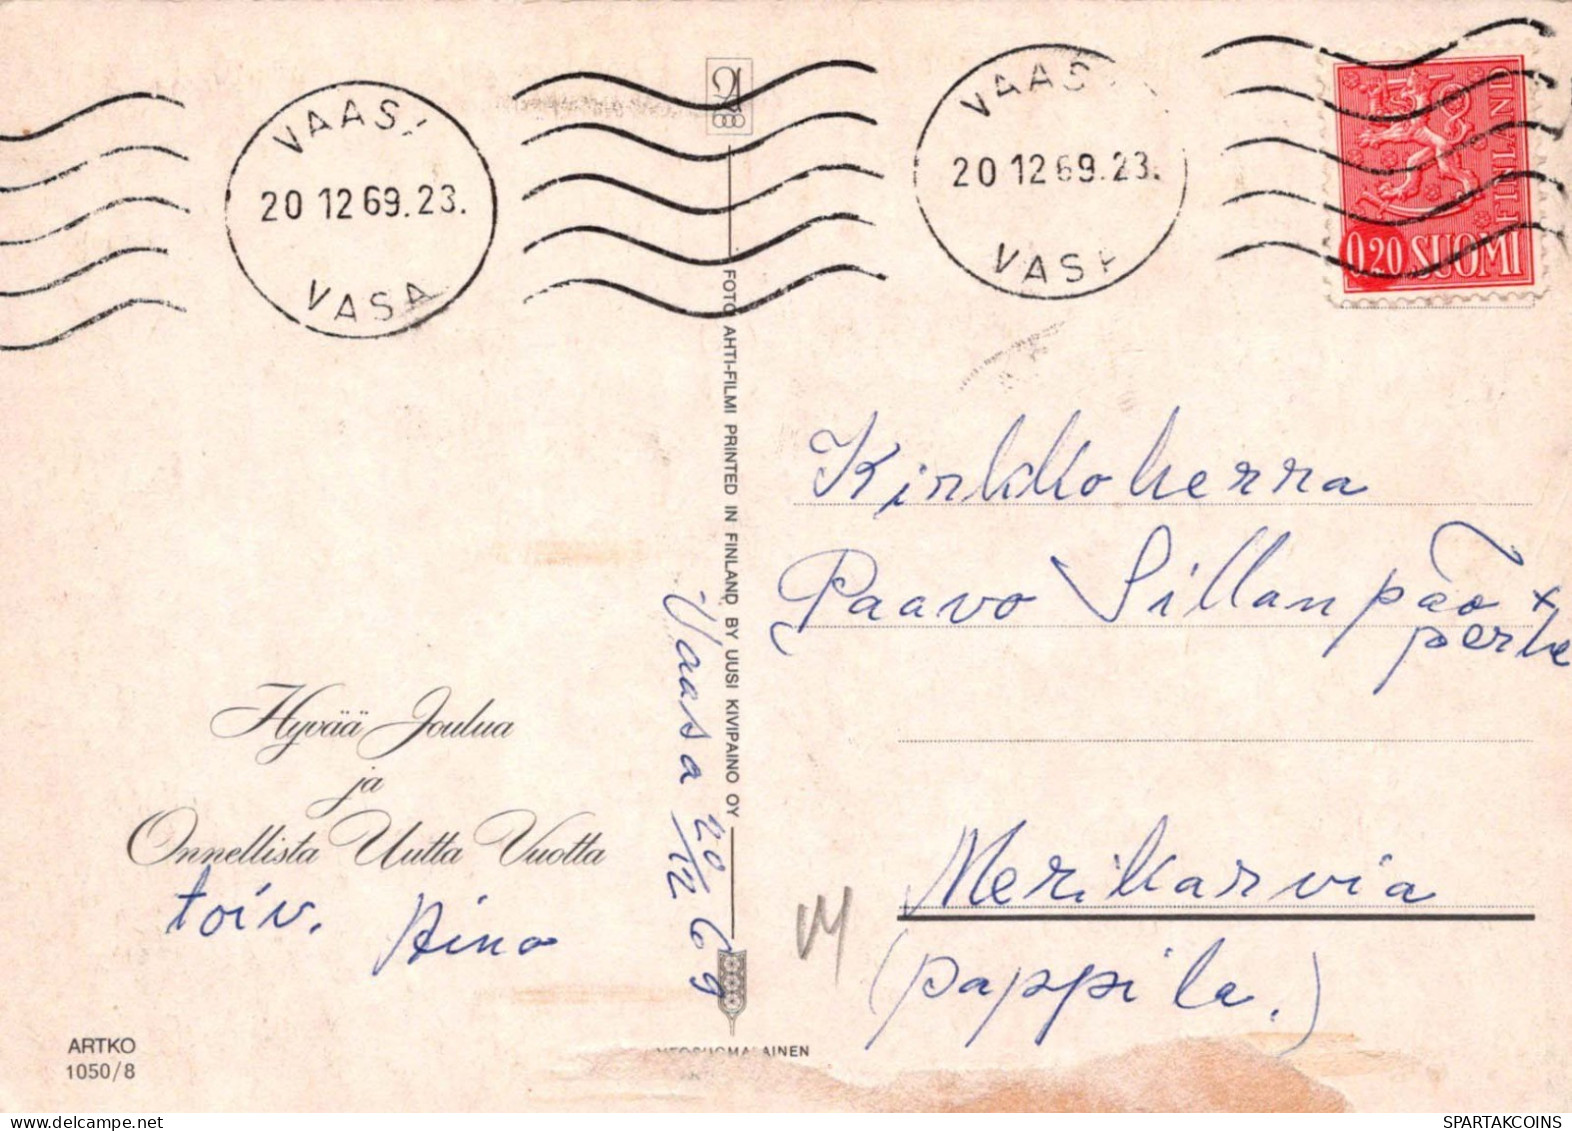 VAASA
20 12 69.23.
VASA
VAAS
20 12 69.23.
VASA
FINLAND
0,20 SUOMI
FOTO AHTI-FILMI PRINTED IN FINLAND BY UUSI KIVIPAINO OY
Vaasa 20/12 69
Kirkkoherra
Paavo Sillanpää +
perhe
Merikarvia
(pappila.)
Hyvää Joulua
ja
Onnellista Uutta Vuotta
toiv. Aino
ARTKO
1050/8
SPARTAKCOINS.COM